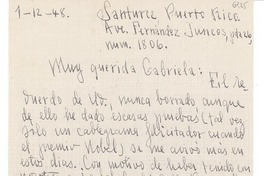 1-12-48.
Santurce Puerto Rico.
Ave. Fernández Juncos, pda 26,
num. 1806.
Muy querida Gabriela: El re
cuerdo de Ud., nunca borrado aunque
de ello he dado escasas pruebas (tal vez
sólo un cablegrama felicitador cuando
el premio Nobel), se me avivó más en
estos días. Con motivo de haber tenido en